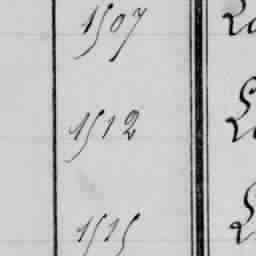 1507
1512
1515